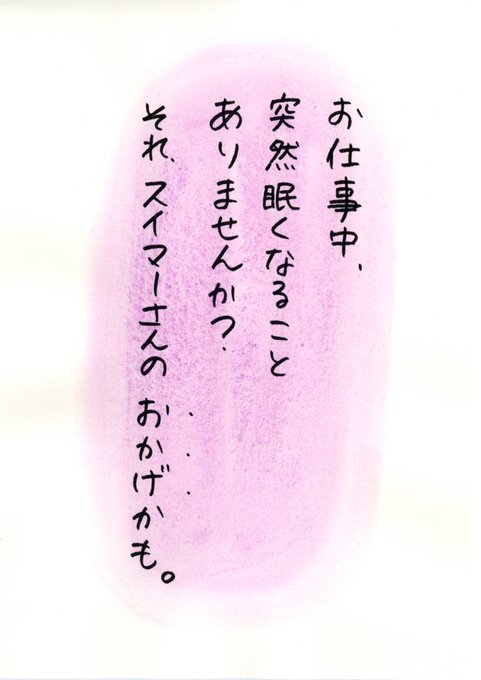 お仕事中、
突然眠くなること
ありませんか?
それ、スイマーさんのおかげかも。